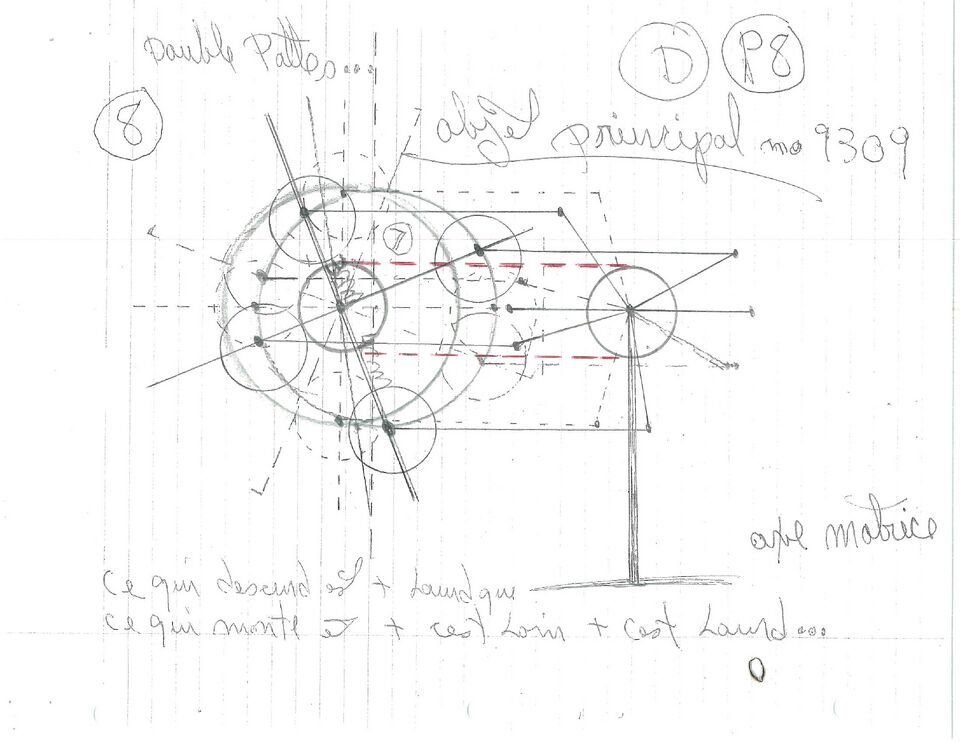 Double Pattes...
D P8
8
objet principal no 9309
7
axe motrice
ce qui descend est + Lourd que
ce qui monte et + cest Loin + cest Lourd...
0